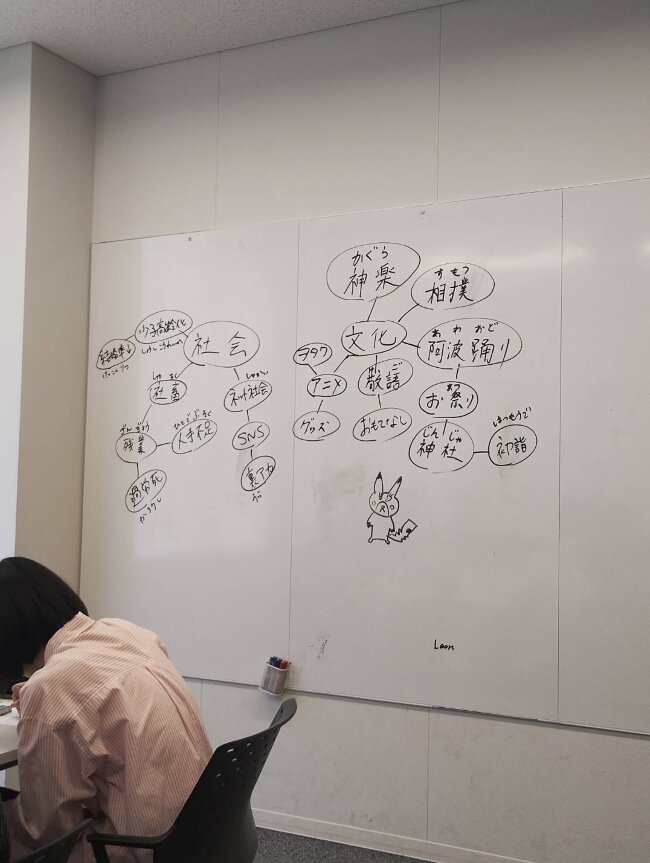 しょうしこうれいか
少子高齢化
社会
けっこんりつ
しゃちく
社畜
ざんぎょう
残業
ひとでぶそく
人手不足
過労死
かろうし
しゃかい
ネット社会
SNS
裏アカ
うら
かぐら
神楽
すもう
相撲
文化
あわ おど
阿波踊り
まつ
お祭り
じんじゃ
神社
はつもうで
初詣
けいご
敬語
おもてなし
ヲタク
アニメ
グッズ
Leon